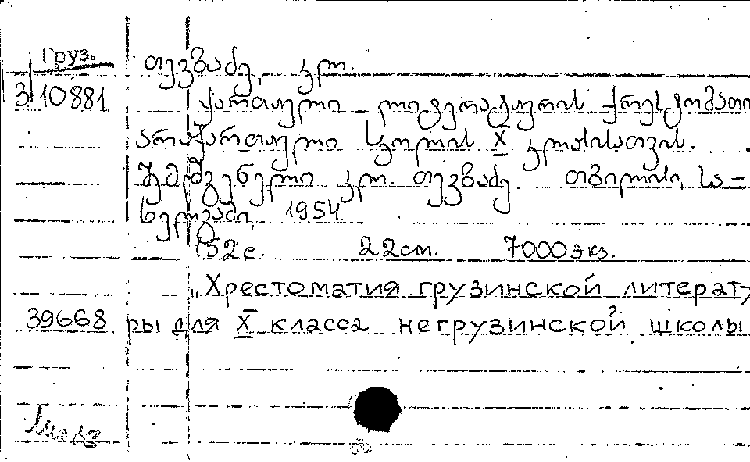 Груз. თევზაძე, კლ.
3/10881 ქართული ლიტერატურის ქრესტომათი
არაქართული სკოლის X კლასისათვის.
შემდგენელი კლ. თევზაძე. თბილისი, სა-
ხელგამი, 1954
152 с. 22 см. 7000 экз.
„Хрестоматия грузинской литерату
39668 ры для X класса негрузинской школы